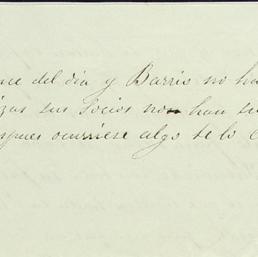 nce del dia y Barrio no ha
izas sus Socios no han
spues ocurriese algo te lo